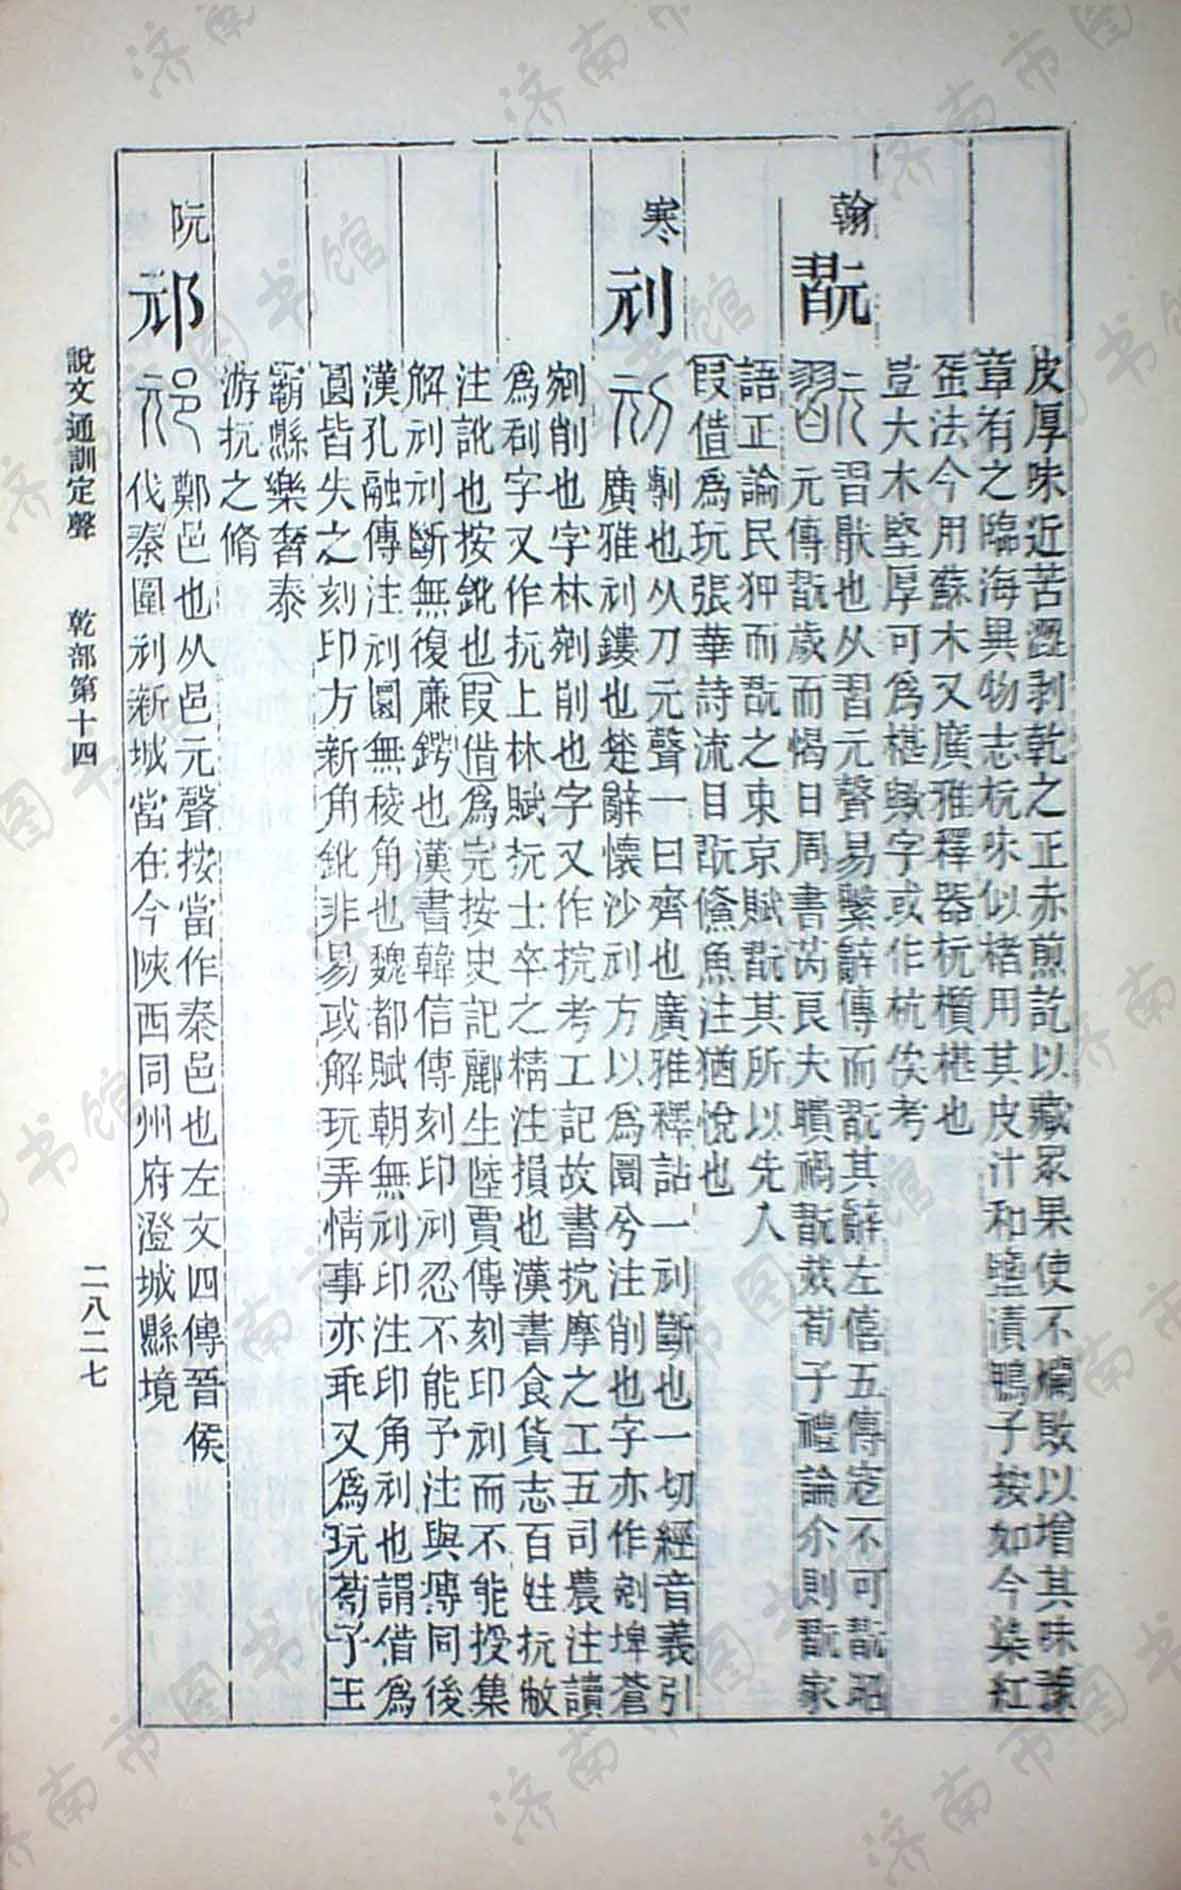 皮厚味近苦澀剥乾之正赤煎訖以藏眾果使不爛敗以增其味豫
章有之臨海異物志杬味似楮用其皮汁和鹽漬鴨子按如今染紅
蛋法今用蘇木又廣雅釋器杬櫝椹也
豈大木堅厚可爲椹歟字或作杭俟考
翰
翫
習猒也从習元聲易繫辭傳而翫其辭左僖五傳寇不可翫昭
元傳翫歲而愒日周書芮良夫瞶禍翫烖荀子禮論尒則翫家
語正論民狎而翫之東京賦翫其所以先入
叚借爲玩張華詩流目翫儵魚注猶悅也
寒
刓
剸也从刀元聲一曰齊也廣雅釋詁一刓斷也一切經音義引
廣雅刓鏤也楚辭懷沙刓方以爲圜兮注削也字亦作剜埤蒼
剜削也字林剜削也字又作捖考工記故書捖摩之工五司農注讀
爲刮字又作抏上林賦抏士卒之精注損也漢書食貨志百姓抏敝
注訛也按鈋也叚借爲完按史記酈生陸賈傳刻印刓而不能授集
解刓刓斷無復廉鍔也漢書韓信傳刻印刓忍不能予注與摶同後
漢孔融傳注刓園無稜角也魏都賦朝無刓印注印角刓也謂借爲
圓皆失之刻印方新角鈋非易或解玩弄情事亦乖又爲玩荀子王
霸縣樂奢泰
游抏之脩
阮
邧
鄭邑也从邑元聲按當作秦邑也左文四傳晉侯
伐秦圍刓新城當在今陝西同州府澄城縣境
說文通訓定聲　乾部第十四
二八二七
济南市图书馆